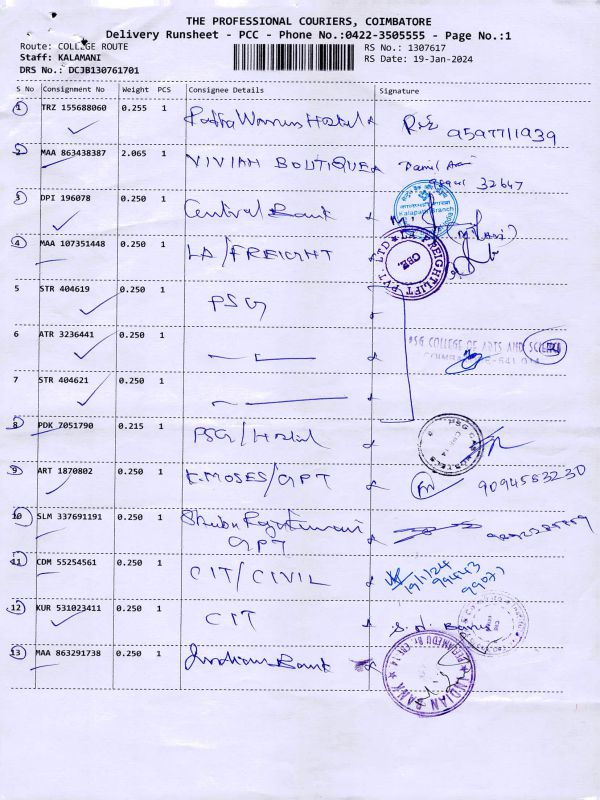 THE PROFESSIONAL COURIERS, COIMBATORE
Delivery Runsheet - PCC - Phone No.:0422-3505555 - Page No.:1
Route: COLLEGE ROUTE RS No.: 1307617
Staff: KALAMANI RS Date: 19-Jan-2024
DRS No.: DCJB130761701
S No Consignment No Weight PCS Consignee Details Signature
1 TRZ 155688060 0.255 1 9597711939
2 MAA 863438387 2.065 1 VIVIAH BOUTIQUE 32647
3 DPI 196078 0.250 1 Central Bank
Kalapatti Branch
4 MAA 107351448 0.250 1 LA/FREIGHT
LA FREIGHTLIFT PVT. LTD CBE.
5 STR 404619 0.250 1 PSG
6 ATR 3236441 0.250 1
PSG COLLEGE OF ARTS AND SCIENCE
7 STR 404621 0.250 1
8 PDK 7051790 0.215 1 PSG/Hostel
9 ART 1870802 0.250 1 K.MOSES/GPT 9094583230
10 SLM 337691191 0.250 1
GPT
11 CDM 55254561 0.250 1 CIT/CIVIL 19/1/24
12 KUR 531023411 0.250 1 CIT
13 MAA 863291738 0.250 1 Indian Bank
INDIAN BANK